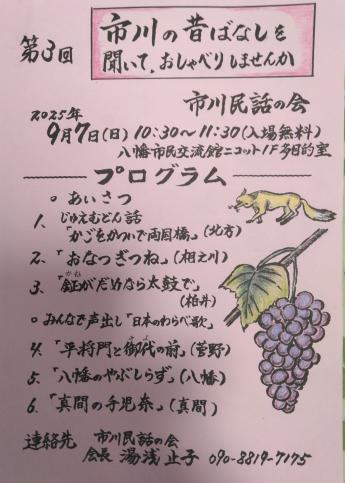 第3回
市川の昔ばなしを
聞いて、おしゃべりしませんか
市川民話の会
2025年
9月7日(日) 10:30〜11:30(入場無料)
八幡市民交流館ニコット1F多目的室
プログラム
○ あいさつ
1. じゅえむどん話
「かごをかついで両国橋」(北方)
2. 「おなつぎつね」(相之川)
3. 「鉦がだめなら太鼓で」
かね
(柏井)
○ みんなで声出し「日本のわらべ歌」
4. 「平将門と御代の前」(菅野)
5. 「八幡のやぶしらず」(八幡)
6. 「真間の手児奈」(真間)
連絡先 市川民話の会
会長 湯浅止子 090-8819-7175